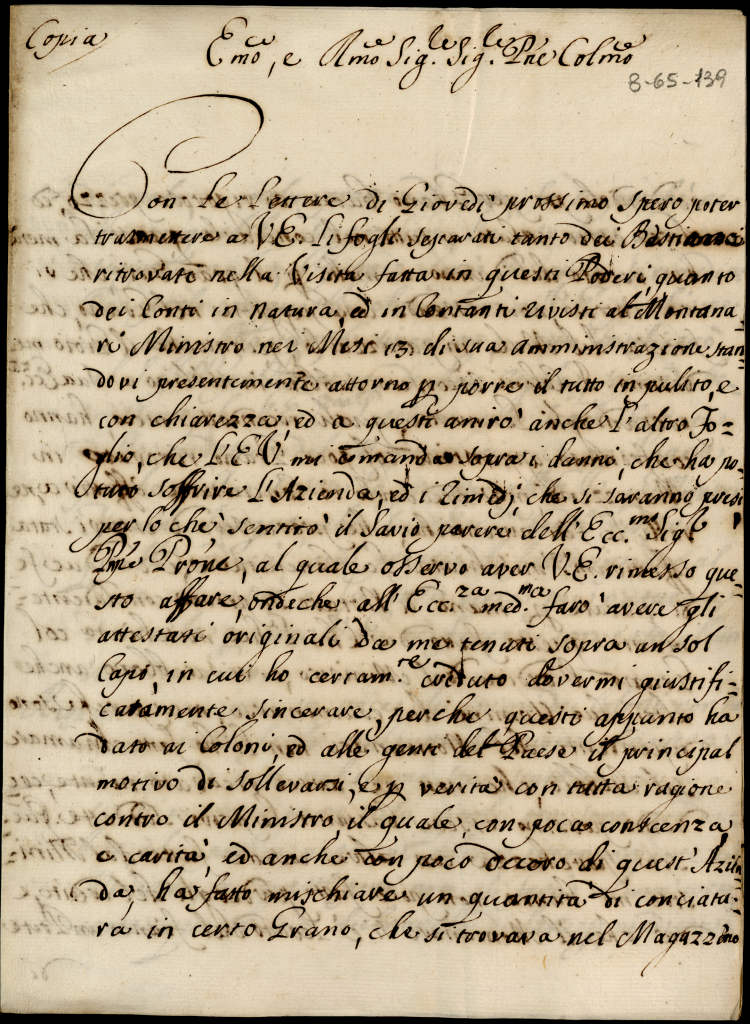 Copia
Em̃o, e Rm̃o Sig.re Sig.re Pñe Colm̃o
8-65-139
Con le lettere di Giovedì prossimo spero poter
trasmettere a V.E. li fogli separati tanto dei Bestiami
ritrovati nella Visita fatta in questi Poderi, quanto
dei Conti in natura, ed in Contanti rivisti al Montana
ri Ministro nei Mesi 13. di sua amministrazione stan
dovi presentemente attorno p porre il tutto in pulito, e
con chiarezza, ed a questi unirò anche l'altro Fo=
glio, che l'E.V. mi comanda sopra i danni, che ha po
tuto soffrire l'Azienda, ed i rimedj, che si saranno presi
per lo che sentirò il savio parere dell'Ecc.mo Sig.re
Pñpe Prõne, al quale osservo aver V.E. rimesso que=
sto affare, ondeche all'Ecc.za med.ma farò avere gli
attestati originali da me tenuti sopra un sol
Capo, in cui ho certam.te creduto dovermi giustifi=
catamente sincerare, perche questo appunto ha
dato ai Coloni, ed alle genti del Paese il principal
motivo di sollevarsi, e p verità con tutta ragione
contro il Ministro, il quale, con poca coscenza,
e carità, ed anche con poco decoro di quest'Azien
da, ha fatto mischiare un quantità di conciatu=
ra in certo Grano, che si trovava nel Magazzino